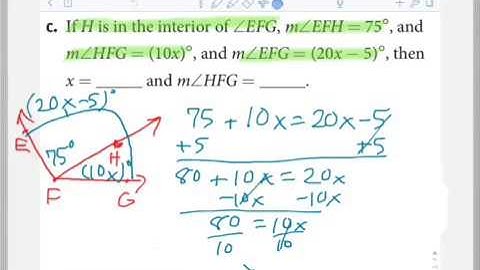 c. If H is in the interior of ∠EFG, m∠EFH = 75°, and
m∠HFG = (10x)°, and m∠EFG = (20x − 5)°, then
x = ______ and m∠HFG = ______.
(20x-5)°
E
75°
H
(10x)°
F
G
75 + 10x = 20x - 5
+5 +5
80 + 10x = 20x
-10x -10x
80 = 10x
10 10